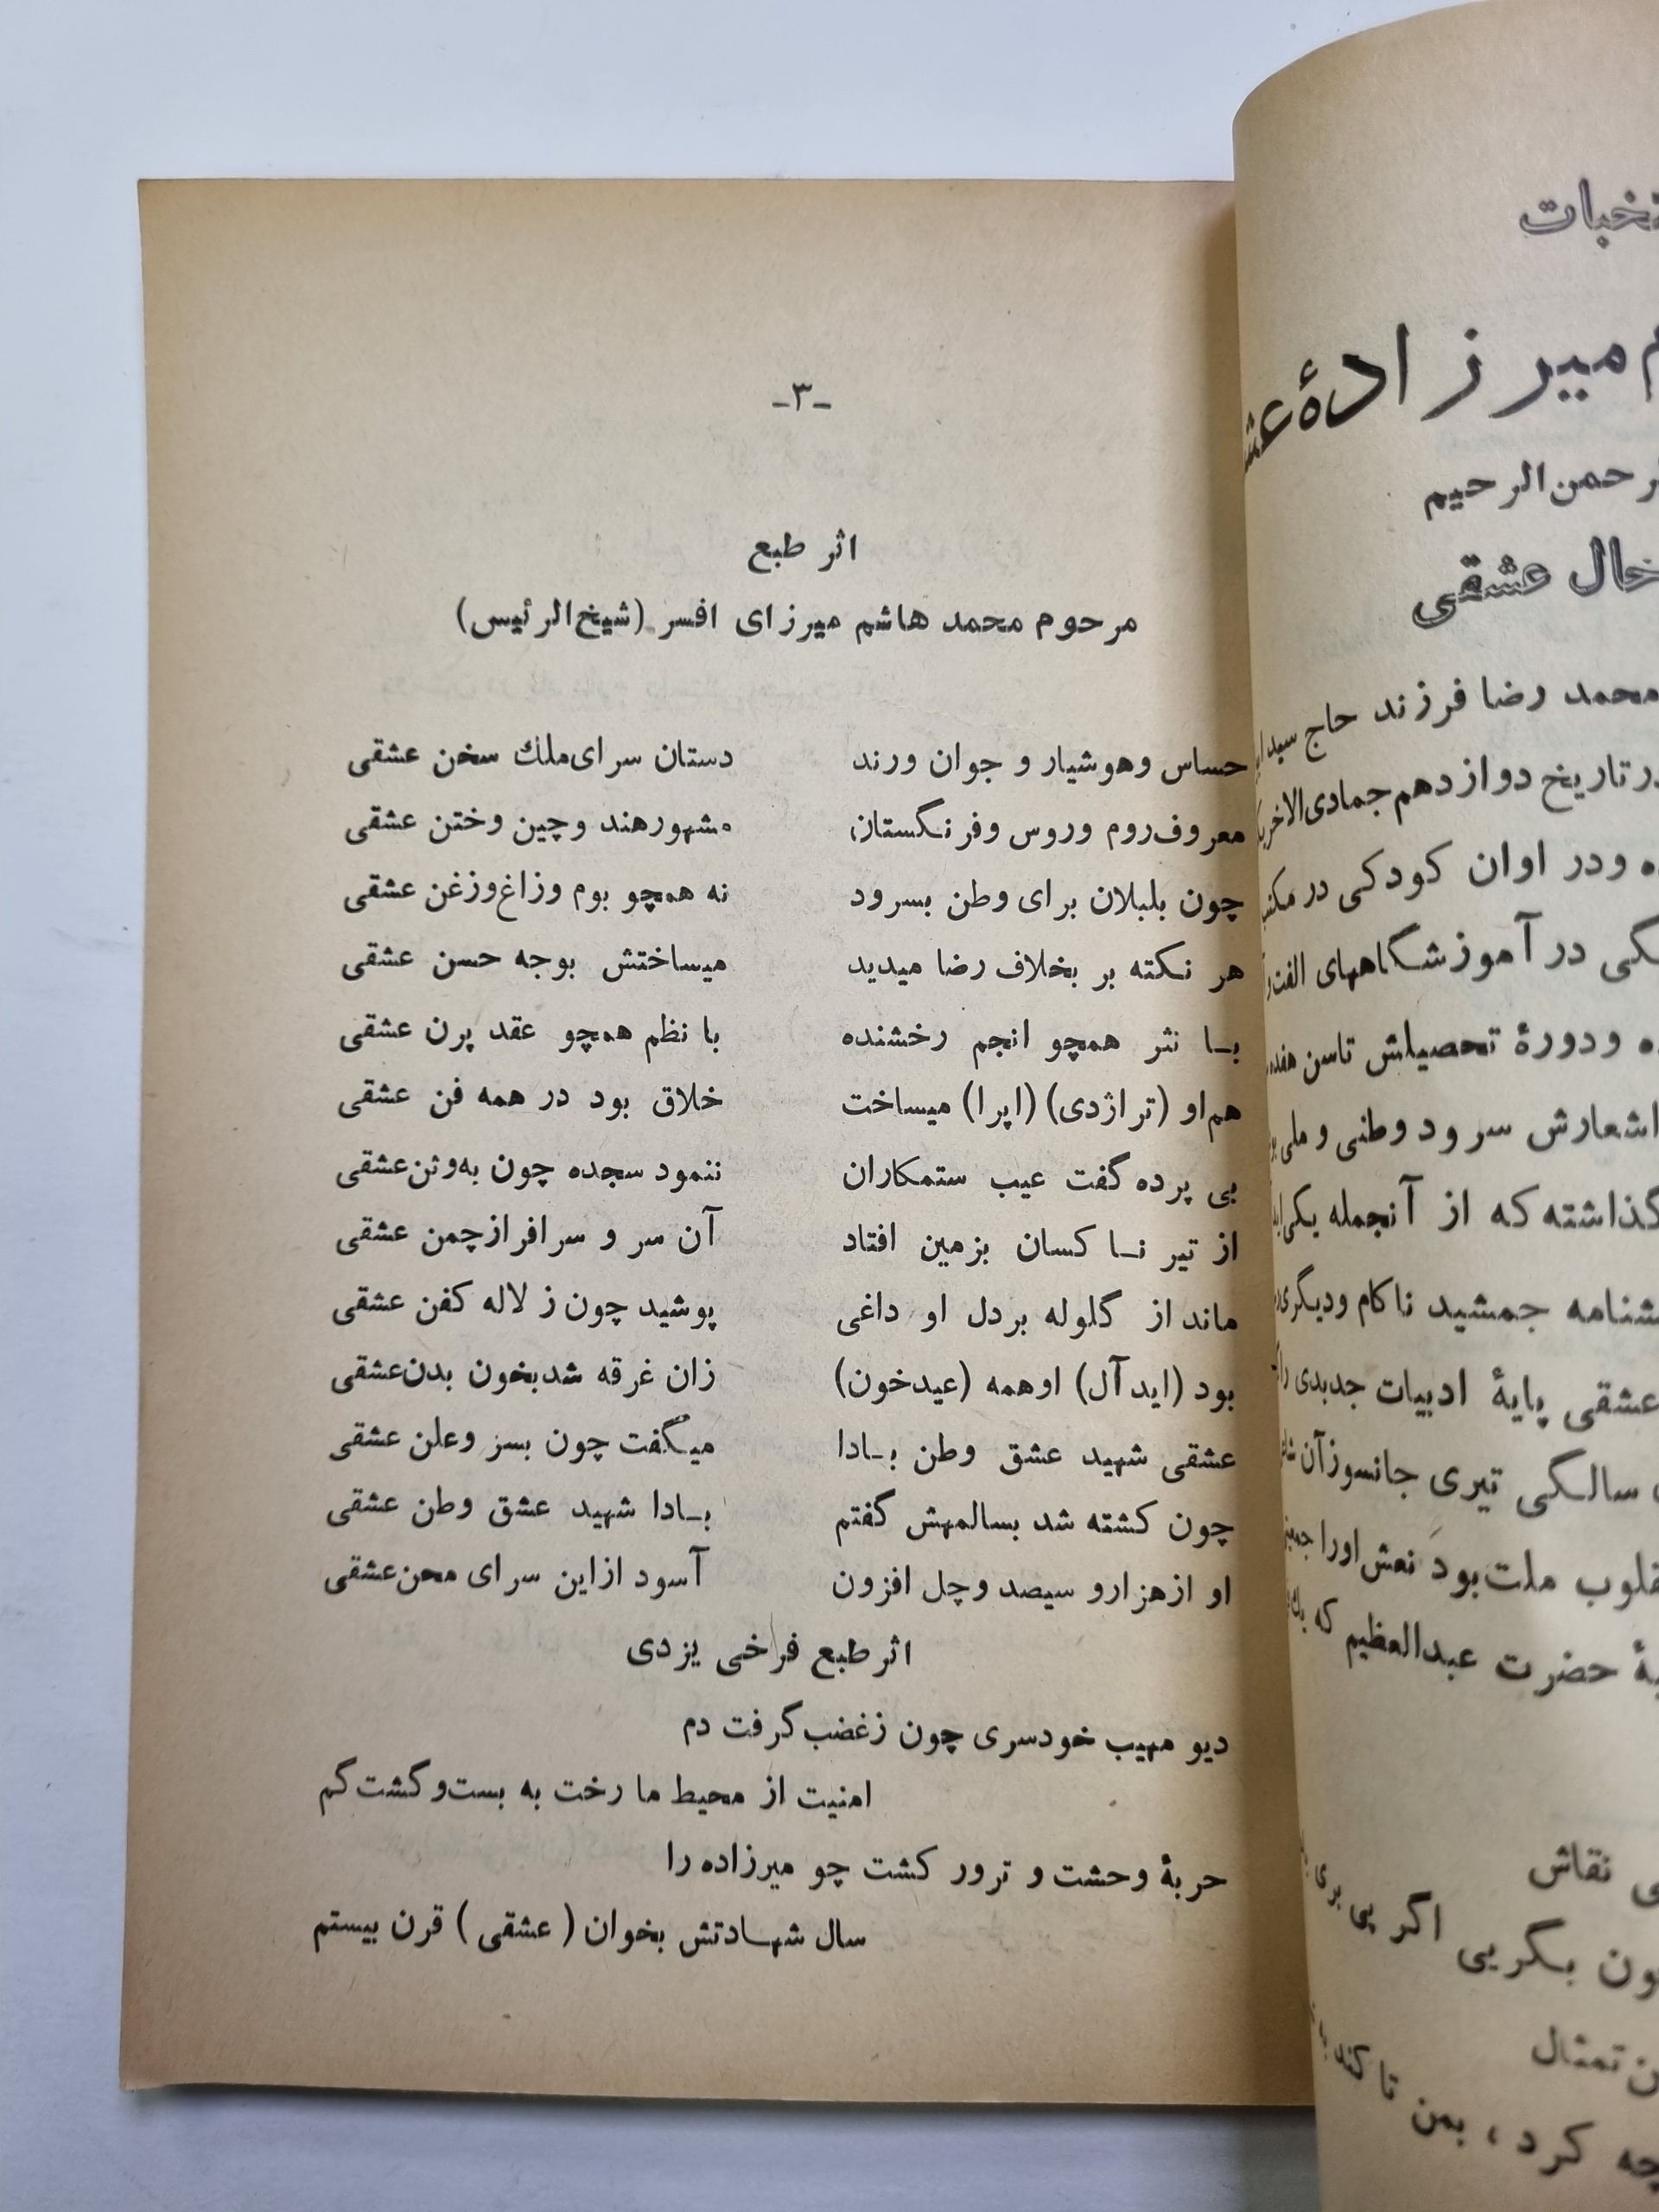 -۳-
اثر طبع
مرحوم محمد هاشم میرزای افسر (شیخ‌الرئیس)
حساس وهوشیار و جوان ورند دستان سرای‌ملك سخن عشقی
معروف‌روم وروس وفرنگستان مشهورهند وچین وختن عشقی
چون بلبلان برای وطن بسرود نه همچو بوم وزاغ‌وزغن عشقی
هر نکته بر بخلاف رضا میدید میساختش بوجه حسن عشقی
با نثر همچو انجم رخشنده با نظم همچو عقد پرن عشقی
هم‌او (تراژدی) (اپرا) میساخت خلاق بود در همه فن عشقی
بی پرده گفت عیب ستمکاران ننمود سجده چون به‌وثن‌عشقی
از تیر نـا کسان بزمین افتاد آن سر و سرافرازچمن عشقی
ماند از گلوله بردل او داغی پوشید چون ز لاله کفن عشقی
بود (ایدآل) اوهمه (عیدخون) زان غرقه شدبخون بدن‌عشقی
عشقی شهید عشق وطن بـادا میگفت چون بسز وعلن عشقی
چون کشته شد بسالمهش گفتم بـادا شهید عشق وطن عشقی
او ازهزارو سیصد وچل افزون آسود ازاین سرای محن‌عشقی
اثر طبع فراخی یزدی
دیو مهیب خودسری چون زغضب‌گرفت دم
امنیت از محیط ما رخت به بست‌وگشت‌گم
حربهٔ وحشت و ترور کشت چو میرزاده را
سال شهـادتش بخوان (عشقی) قرن بیستم
میرزادهٔ
رحمن‌الرحیم
عشقی
محمد رضا فرزند حاج
تاریخ دوازدهم‌جمادی‌الاخر
ودر اوان کودکی در
در آموزشگاههای
ودورهٔ تحصیلش تاسن
اشعارش سرود وطنی و ملی
گذاشته‌که از آنجمله یکی
جمشید ناکام ودیگری
عشقی پایهٔ ادبیات جدیدی
سالگی تیری جانسوزآن
ملت‌بود نعش‌اورا
حضرت عبدالعظیم که
نقاش
بگریی اگر پی بری
تمثال
کرد، بمن تا کند